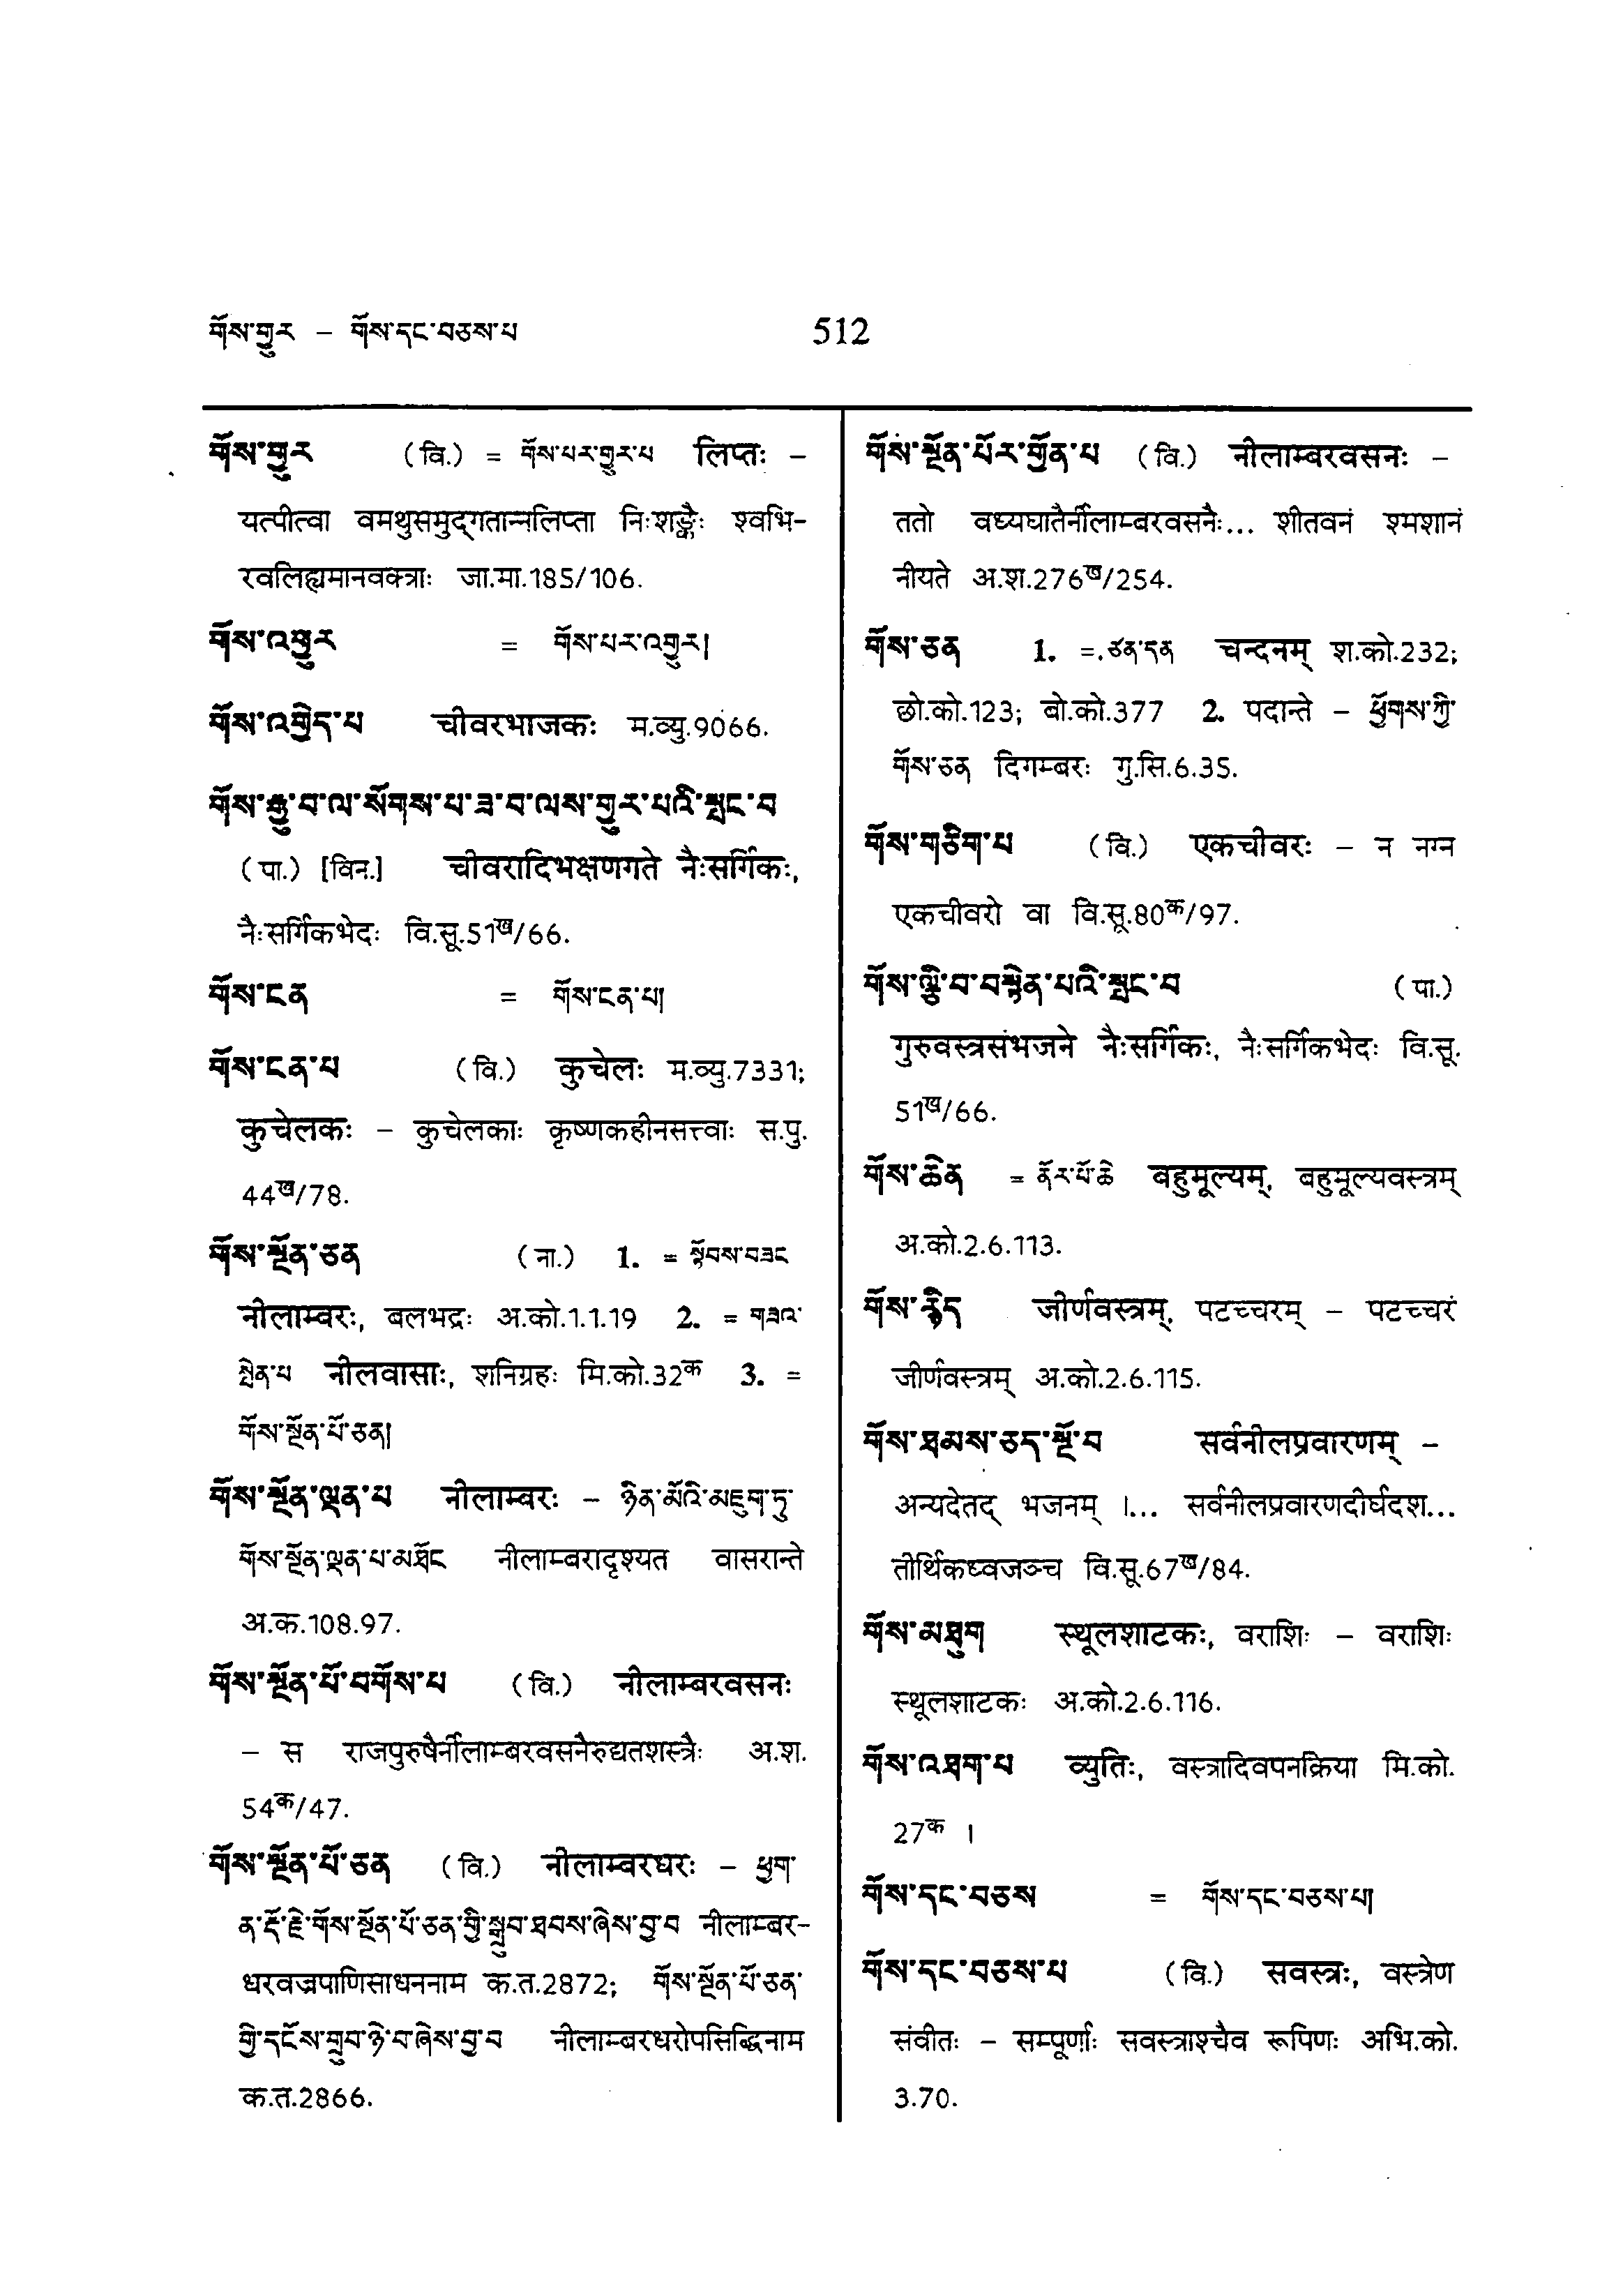 གོས་གྱུར – གོས་དང་བཅས་པ 512
གོས་གྱུར (वि.) = གོས་པར་གྱུར་པ लिप्तः –
यत्पीत्वा वमथुसमुद्‍गतान्नलिप्ता निःशङ्कैः श्वभि-
रवलिह्यमानवक्त्राः जा.मा.185/106.
གོས་འགྱུར = གོས་པར་འགྱུར།
གོས་འགྱེད་པ चीवरभाजकः म.व्यु.9066.
གོས་རྒྱུ་བ་ལ་སོགས་པ་ཟ་བ་ལས་གྱུར་པའི་སྤང་བ
(पा.) [विन.] चीवरादिभक्षणगते नैःसर्गिकः,
नैःसर्गिकभेदः वि.सू.51ख/66.
གོས་ངན = གོས་ངན་པ།
གོས་ངན་པ (वि.) कुचेलः म.व्यु.7331;
कुचेलकः – कुचेलकाः कृष्णकहीनसत्त्वाः स.पु.
44ख/78.
གོས་སྔོན་ཅན (ना.) 1. = སྟོབས་བཟང
नीलाम्बरः, बलभद्रः अ.को.1.1.19 2. = གཟའ་
སྤེན་པ नीलवासाः, शनिग्रहः मि.को.32क 3. =
གོས་སྔོན་པོ་ཅན།
གོས་སྔོན་ལྡན་པ नीलाम्बरः – ཉིན་མོའི་མཇུག་ཏུ་
གོས་སྔོན་ལྡན་པ་མཐོང नीलाम्बरादृश्यत वासरान्ते
अ.क.108.97.
གོས་སྔོན་པོ་བགོས་པ (वि.) नीलाम्बरवसनः
– स राजपुरुषैर्नीलाम्बरवसनैरुद्यतशस्त्रैः अ.श.
54क/47.
གོས་སྔོན་པོ་ཅན (वि.) नीलाम्बरधरः – ཕྱག་
ན་རྡོ་རྗེ་གོས་སྔོན་པོ་ཅན་གྱི་སྒྲུབ་ཐབས་ཞེས་བྱ་བ नीलाम्बर-
धरवज्रपाणिसाधननाम क.त.2872; གོས་སྔོན་པོ་ཅན་
གྱི་དངོས་གྲུབ་ཉེ་བ་ཞེས་བྱ་བ नीलाम्बरधरोपसिद्धिनाम
क.त.2866.
གོས་སྔོན་པོར་གྱོན་པ (वि.) नीलाम्बरवसनः –
ततो वध्यघातैर्नीलाम्बरवसनैः... शीतवनं श्मशानं
नीयते अ.श.276ख/254.
གོས་ཅན 1. =. ཙན་དན चन्दनम् श.को.232;
छो.को.123; बो.को.377 2. पदान्ते – ཕྱོགས་ཀྱི་
གོས་ཅན दिगम्बरः गु.सि.6.35.
གོས་གཅིག་པ (वि.) एकचीवरः – न नग्न
एकचीवरो वा वि.सू.80क/97.
གོས་ལྕི་བ་བསྟེན་པའི་སྤང་བ (पा.)
गुरुवस्त्रसंभजने नैःसर्गिकः, नैःसर्गिकभेदः वि.सू.
51ख/66.
གོས་ཆེན = ནོར་པོ་ཆེ बहुमूल्यम्, बहुमूल्यवस्त्रम्
अ.को.2.6.113.
གོས་རྙིད जीर्णवस्त्रम्, पटच्चरम् – पटच्चरं
जीर्णवस्त्रम् अ.को.2.6.115.
གོས་ཐམས་ཅད་སྔོ་བ सर्वनीलप्रवारणम् –
अन्यदेतद् भजनम् ।... सर्वनीलप्रवारणदीर्घदश...
तीर्थिकध्वजञ्च वि.सू.67ख/84.
གོས་མཐུག स्थूलशाटकः, वराशिः – वराशिः
स्थूलशाटकः अ.को.2.6.116.
གོས་འཐག་པ व्युतिः, वस्त्रादिवपनक्रिया मि.को.
27क ।
གོས་དང་བཅས = གོས་དང་བཅས་པ།
གོས་དང་བཅས་པ (वि.) सवस्त्रः, वस्त्रेण
संवीतः – सम्पूर्णाः सवस्त्राश्चैव रूपिणः अभि.को.
3.70.